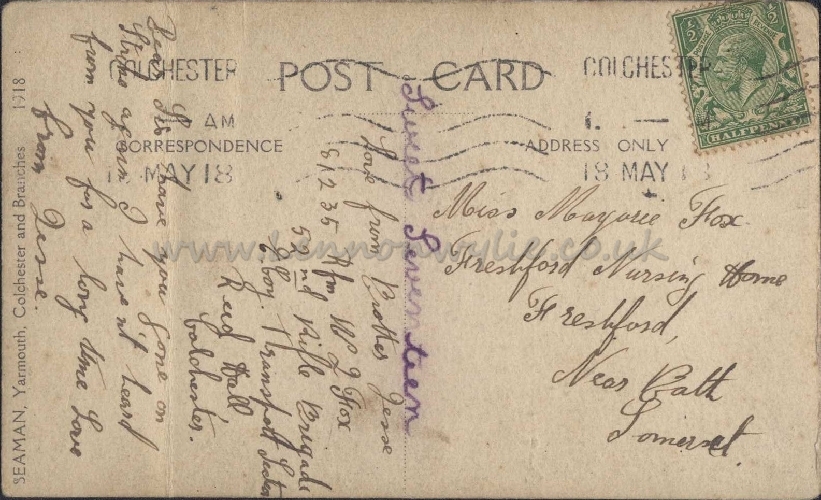 POST CARD
COLCHESTER
COLCHESTER
AM
18 MAY 18
18 MAY 18
CORRESPONDENCE
ADDRESS ONLY
HALFPENNY
Dear Sis have you gone on
Strike again I haven't heard
from you for a long time Love
from Jesse.
Sweet Seventeen
Love from Brother Jesse
Rfm W J Fox
52nd Rifle Brigade
Coy. Transport Section
Reed Hall
Colchester.
Miss Marjorie Fox.
Freshford Nursing Home
Freshford,
Near Bath
Somerset
SEAMAN, Yarmouth, Colchester and Branches 1918
www.lennonwylie.co.uk